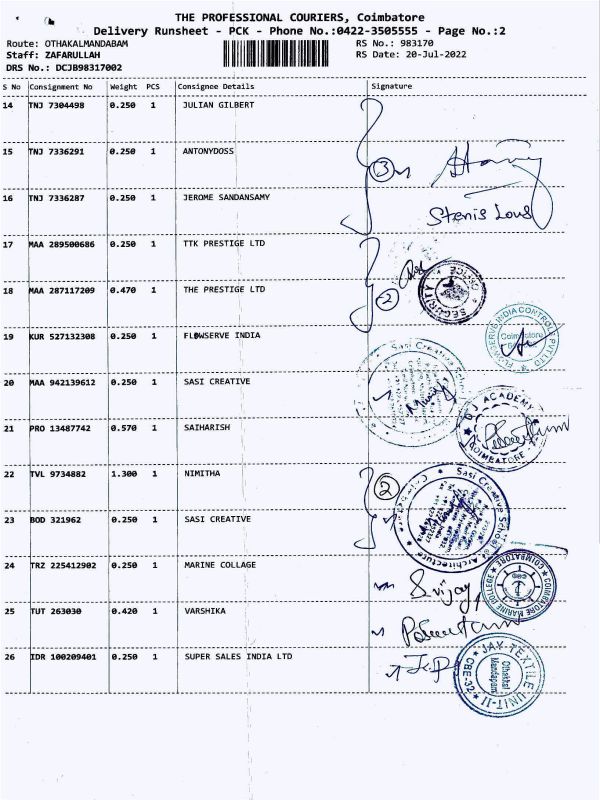 THE PROFESSIONAL COURIERS, Coimbatore
Delivery Runsheet - PCK - Phone No.:0422-3505555 - Page No.:2
Route: OTHAKALMANDABAM RS No.: 983170
Staff: ZAFARULLAH RS Date: 20-Jul-2022
DRS No.: DCJB98317002
S No Consignment No Weight PCS Consignee Details Signature
14 TNJ 7304498 0.250 1 JULIAN GILBERT
15 TNJ 7336291 0.250 1 ANTONYDOSS
3
16 TNJ 7336287 0.250 1 JEROME SANDANSAMY
Stenis Lous
17 MAA 289500686 0.250 1 TTK PRESTIGE LTD
18 MAA 287117209 0.470 1 THE PRESTIGE LTD
2
SECURITY OFFICE
19 KUR 527132308 0.250 1 FLOWSERVE INDIA
FLOWSERVE INDIA CONTROLS PVT LTD
Coimbatore
20 MAA 942139612 0.250 1 SASI CREATIVE
Sasi Creative School
21 PRO 13487742 0.570 1 SAIHARISH
ACADEMY
COIMBATORE
22 TVL 9734882 1.300 1 NIMITHA
2
Sasi Creative School of Architecture
23 BOD 321962 0.250 1 SASI CREATIVE
24 TRZ 225412902 0.250 1 MARINE COLLAGE
S. vijay
COIMBATORE MARINE COLLEGE COIMBATORE
25 TUT 263030 0.420 1 VARSHIKA
26 IDR 100209401 0.250 1 SUPER SALES INDIA LTD
JAY TEXTILE UNIT-II
CBE-32
Othakkal
Mandapam